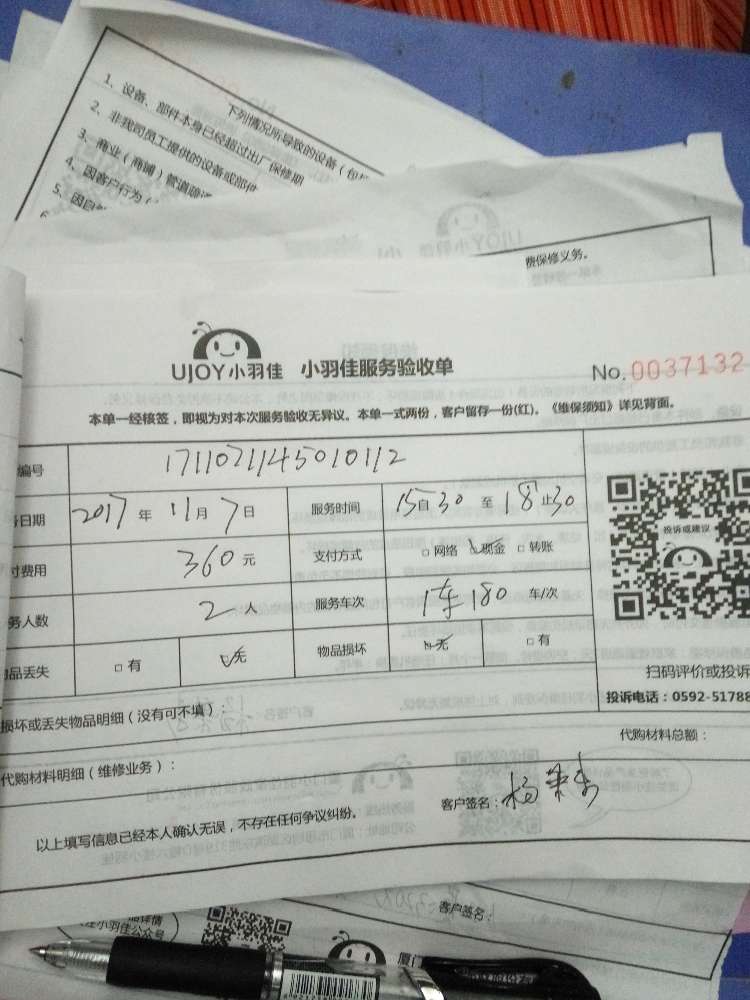 下列情况所导致的设备（包
1、设备、部件本身已经超过出厂保修期
2、非我司员工提供的设备或部件
3、商业（商铺）管道疏通
4、因客户行为（
5、因自
费保修义务。
UJOY小羽佳 小羽佳服务验收单
No. 0037132
本单一经核签，即视为对本次服务验收无异议。本单一式两份，客户留存一份(红)。《维保须知》详见背面。
编号 1711071145010112
日期 2017 年 11 月 7 日 服务时间 15 自 30 至 18 止 30
付费用 360 元 支付方式 □ 网络 ☑ 现金 □ 转账
务人数 2 人 服务车次 1车180 车/次
品丢失 □ 有 ☑ 无 物品损坏 ☑ 无 □ 有
投诉或建议
扫码评价或投诉
投诉电话：0592-51788
损坏或丢失物品明细（没有可不填）：
代购材料总额：
代购材料明细（维修业务）：
客户签名：
以上填写信息已经本人确认无误，不存在任何争议纠纷。
客户签名：
注小羽佳公众号
厦门